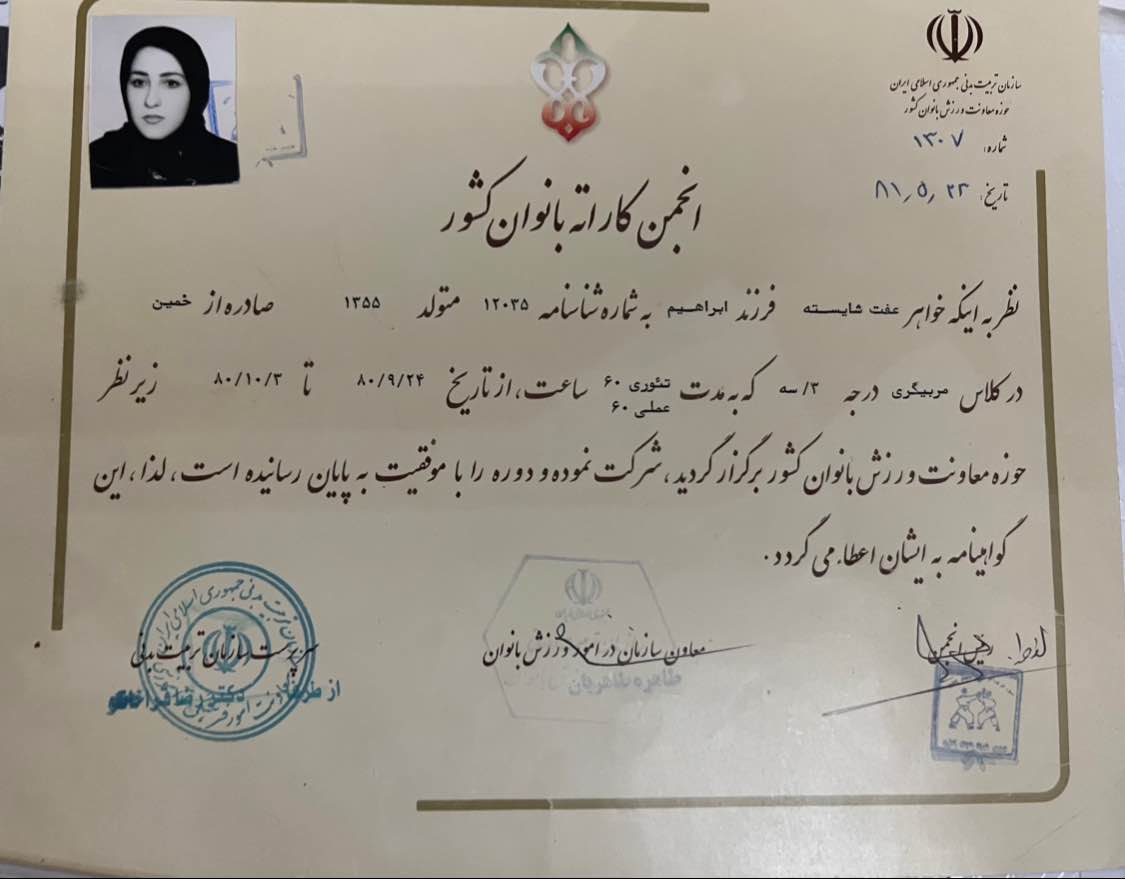 سازمان تربیت بدنی جمهوری اسلامی ایران
حوزه معاونت ورزش بانوان کشور
شماره: ۱۳۰۷
تاریخ: ۸۱/۵/۲۲
انجمن کاراته بانوان کشور
نظر به اینکه خواهر عفت شایسته فرزند ابراهیم به شماره شناسنامه ۱۲۰۳۵ متولد ۱۳۵۵ صادره از خمین
در کلاس مربیگری درجه ۳/سه که به مدت تئوری ۶۰ عملی ۶۰ ساعت، از تاریخ ۸۰/۹/۲۴ تا ۸۰/۱۰/۳ زیر نظر
حوزه معاونت ورزش بانوان کشور برگزار گردید، شرکت نموده و دوره را با موفقیت به پایان رسانیده است، لذا، این
گواهینامه به ایشان اعطاء می گردد.
رئیس انجمن
معاون سازمان در امور ورزش بانوان
طاهره طاهریان
سرپرست سازمان تربیت بدنی
از طرف دکتر رضا قراخانلو